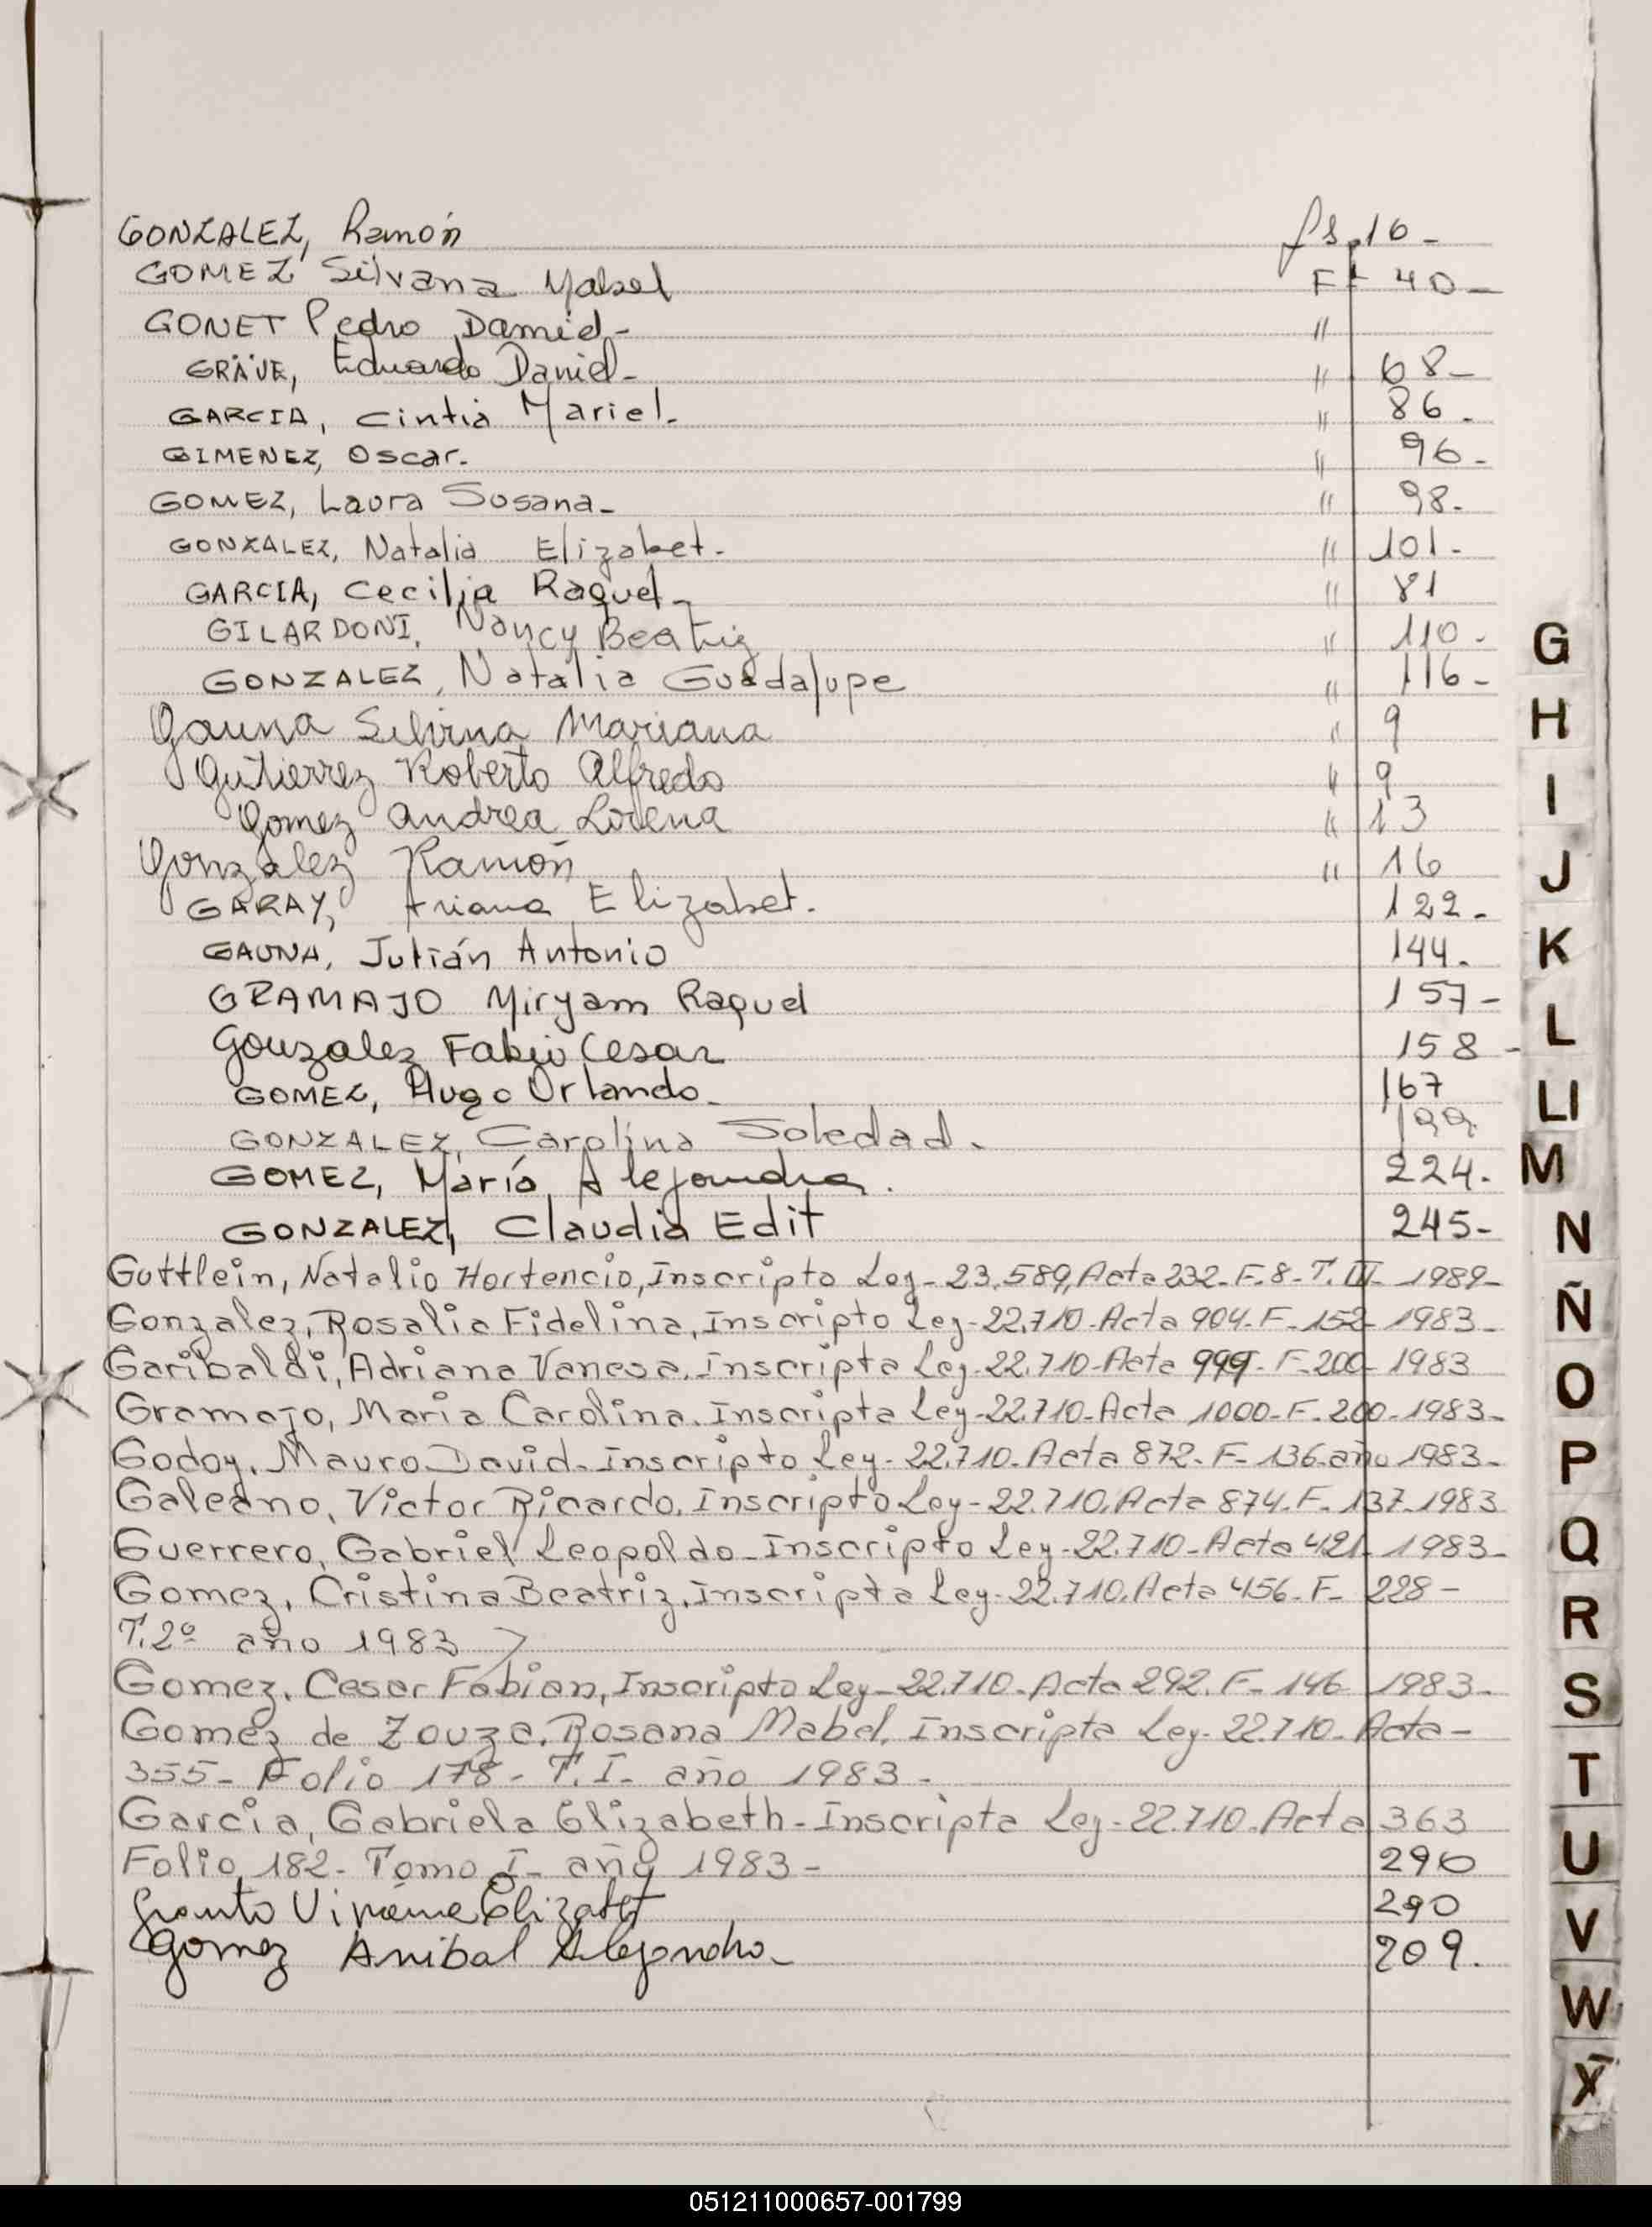 GONZALEZ, Ramón fs. 16-
GOMEZ Silvana Mabel Fº 40-
GONET Pedro Daniel- "
GRAVE, Eduardo Daniel- " 68-
GARCIA, Cintia Mariel- " 86-
GIMENEZ, Oscar- " 96-
GOMEZ, Laura Susana- " 98-
GONZALEZ, Natalia Elizabet- " 101-
GARCIA, Cecilia Raquel- " 81
GILARDONI, Nancy Beatriz " 110-
GONZALEZ, Natalia Guadalupe " 116-
Gauna Silvina Mariana " 9
Gutierrez Roberto Alfredo " 9
Gomez Andrea Lorena " 13
Gonzalez Ramón " 16
GARAY, Elizabet. 122-
GAUNA, Julián Antonio 144.
GRAMAJO Miryam Raquel 157-
Gonzalez Fabio Cesar 158-
GOMEZ, Hugo Orlando- 167
GONZALEZ, Carolina Soledad- 199
GOMEZ, María Alejandra. 224.
GONZALEZ, Claudia Edit 245-
Guttlein, Natalio Hortencio, Inscripto Ley-23.589, Acta 232-F.8-T.III-1989-
Gonzalez, Rosalia Fidelina, Inscripto Ley-22.710-Acta 904-F-152-1983-
Garibaldi, Adriana Vanesa. Inscripta Ley-22.710-Acta 999-F-200-1983
Gramajo, Maria Carolina. Inscripta Ley-22.710-Acta 1000-F-200-1983-
Godoy, Mauro David-Inscripto Ley-22.710-Acta 872-F-136-año 1983-
Galeano, Victor Ricardo, Inscripto Ley-22.710, Acta 874-F-137-1983
Guerrero, Gabriel Leopoldo-Inscripto Ley-22.710-Acta 421-1983-
Gomez, Cristina Beatriz, Inscripta Ley-22.710, Acta 456-F-228-
T.2º año 1983
Gomez, Cesar Fabian, Inscripto Ley-22.710-Acta 292. F-146 1983-
Gomez de Zouza, Rosana Mabel. Inscripta Ley-22.710-Acta-
355-Folio 178-T.I-año 1983-
Garcia, Gabriela Elizabeth-Inscripta Ley-22.710-Acta 363
Folio 182-Tomo I-año 1983- 290
Elizabet 290
Gomez Anibal Alejandro- 209.
G
H
I
J
K
L
Ll
M
N
Ñ
O
P
Q
R
S
T
U
V
W
X
051211000657-001799